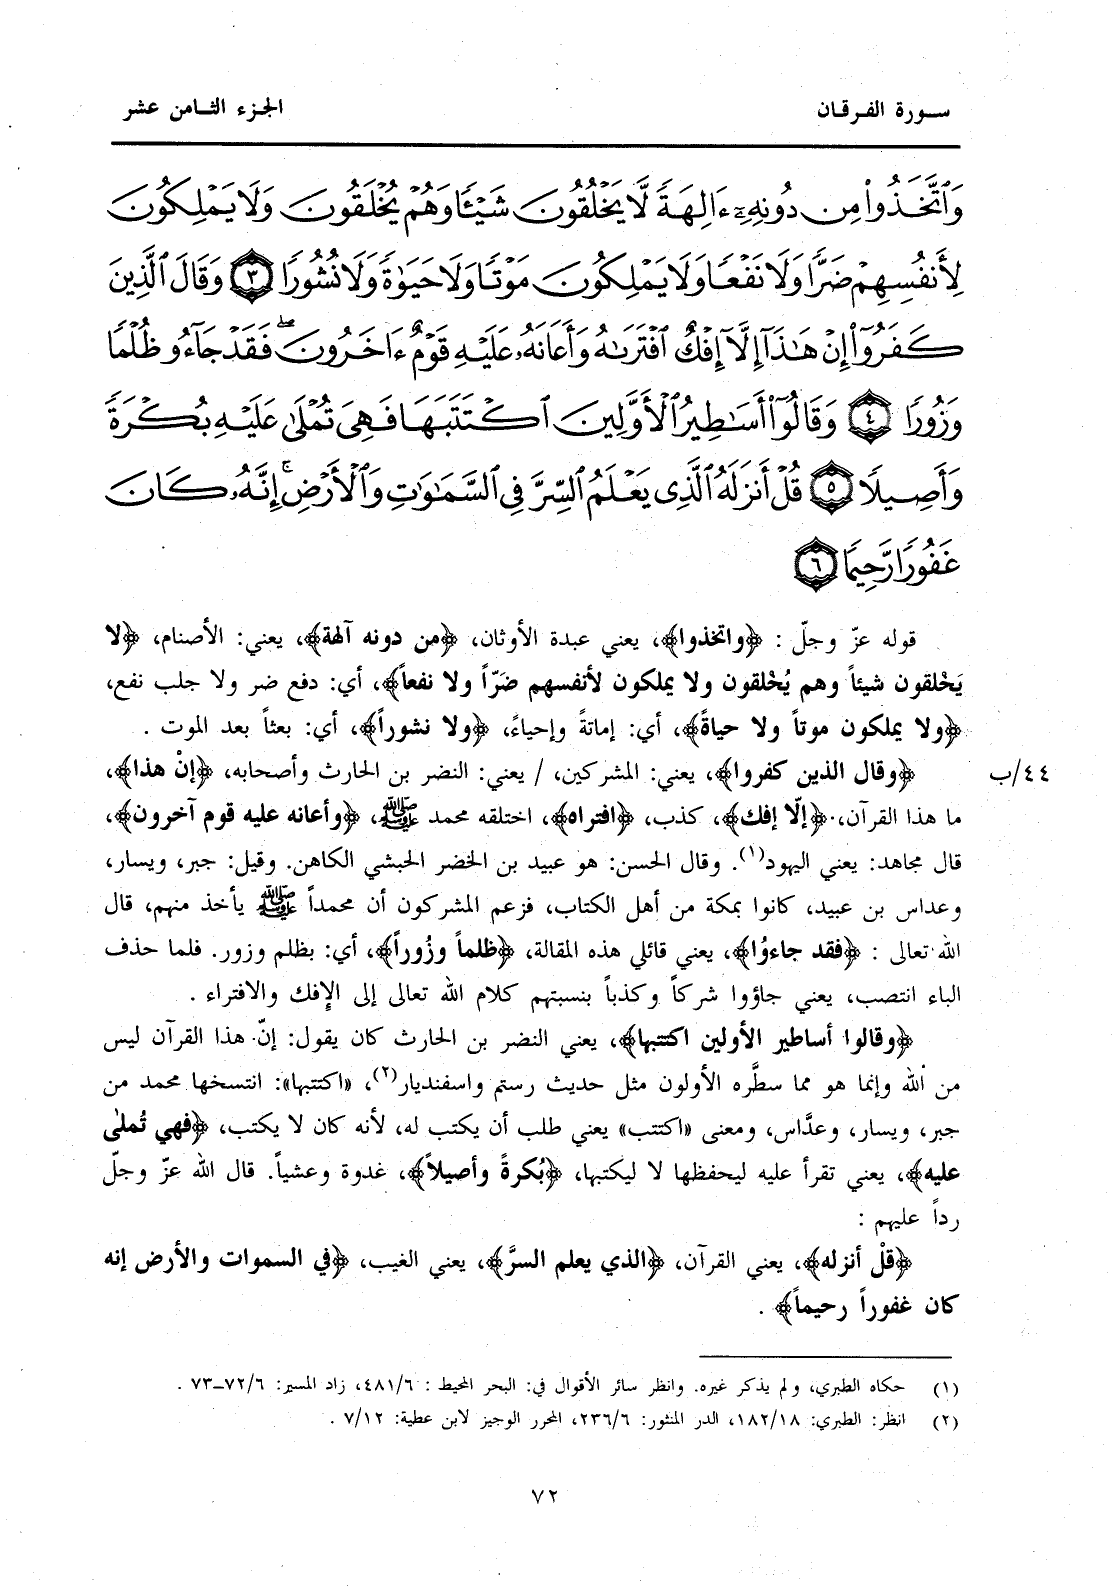 سورة الفرقان
الجزء الثامن عشر
وَٱتَّخَذُوا۟ مِن دُونِهِۦٓ ءَالِهَةً لَّا يَخْلُقُونَ شَيْـًٔا وَهُمْ يُخْلَقُونَ وَلَا يَمْلِكُونَ
لِأَنفُسِهِمْ ضَرًّا وَلَا نَفْعًا وَلَا يَمْلِكُونَ مَوْتًا وَلَا حَيَوٰةً وَلَا نُشُورًا ٣ وَقَالَ ٱلَّذِينَ
كَفَرُوٓا۟ إِنْ هَٰذَآ إِلَّآ إِفْكٌ ٱفْتَرَىٰهُ وَأَعَانَهُۥ عَلَيْهِ قَوْمٌ ءَاخَرُونَ ۖ فَقَدْ جَآءُو ظُلْمًا
وَزُورًا ٤ وَقَالُوٓا۟ أَسَٰطِيرُ ٱلْأَوَّلِينَ ٱكْتَتَبَهَا فَهِىَ تُمْلَىٰ عَلَيْهِ بُكْرَةً
وَأَصِيلًا ٥ قُلْ أَنزَلَهُ ٱلَّذِى يَعْلَمُ ٱلسِّرَّ فِى ٱلسَّمَٰوَٰتِ وَٱلْأَرْضِ ۚ إِنَّهُۥ كَانَ
غَفُورًا رَّحِيمًا ٦
قوله عزّ وجلّ : ﴿واتخذوا﴾، يعني عبدة الأوثان، ﴿من دونه آلهة﴾، يعني: الأصنام، ﴿لا
يَخْلقون شيئاً وهم يُخْلقون ولا يملكون لأنفسهم ضَرّاً ولا نفعاً﴾، أي: دفع ضر ولا جلب نفع،
﴿ولا يملكون موتاً ولا حياةً﴾، أي: إماتةً وإحياءً، ﴿ولا نشوراً﴾، أي: بعثاً بعد الموت .
﴿وقال الذين كفروا﴾، يعني: المشركين، / يعني: النضر بن الحارث وأصحابه، ﴿إنْ هذا﴾، ٤٤/ب
ما هذا القرآن، ﴿إلّا إفك﴾، كذب، ﴿افتراه﴾، اختلقه محمد ﷺ، ﴿وأعانه عليه قوم آخرون﴾،
قال مجاهد: يعني اليهود(١). وقال الحسن: هو عبيد بن الخضر الحبشي الكاهن. وقيل: جبر، ويسار،
وعداس بن عبيد، كانوا بمكة من أهل الكتاب، فزعم المشركون أن محمداً ﷺ يأخذ منهم، قال
الله تعالى : ﴿فقد جاءوُا﴾، يعني قائلي هذه المقالة، ﴿ظلماً وزُوراً﴾، أي: بظلم وزور. فلما حذف
الباء انتصب، يعني جاؤوا شركاً وكذباً بنسبتهم كلام الله تعالى إلى الإفك والافتراء .
﴿وقالوا أساطير الأولين اكتتبها﴾، يعني النضر بن الحارث كان يقول: إنّ هذا القرآن ليس
من الله وإنما هو مما سطَّره الأولون مثل حديث رستم واسفنديار(٢)، «اكتتبها»: انتسخها محمد من
جبر، ويسار، وعدَّاس، ومعنى «اكتتب» يعني طلب أن يكتب له، لأنه كان لا يكتب، ﴿فهي تُملى
عليه﴾، يعني تقرأ عليه ليحفظها لا ليكتبها، ﴿بُكرةً وأصيلاً﴾، غدوة وعشياً. قال الله عزّ وجلّ
رداً عليهم :
﴿قلْ أنزله﴾، يعني القرآن، ﴿الذي يعلم السرَّ﴾، يعني الغيب، ﴿في السموات والأرض إنه
كان غفوراً رحيماً﴾ .
(١) حكاه الطبري، ولم يذكر غيره. وانظر سائر الأقوال في: البحر المحيط : ٤٨١/٦، زاد المسير: ٧٢/٦–٧٣ .
(٢) انظر: الطبري: ١٨٢/١٨، الدر المنثور: ٢٣٦/٦، المحرر الوجيز لابن عطية: ٧/١٢ .
٧٢